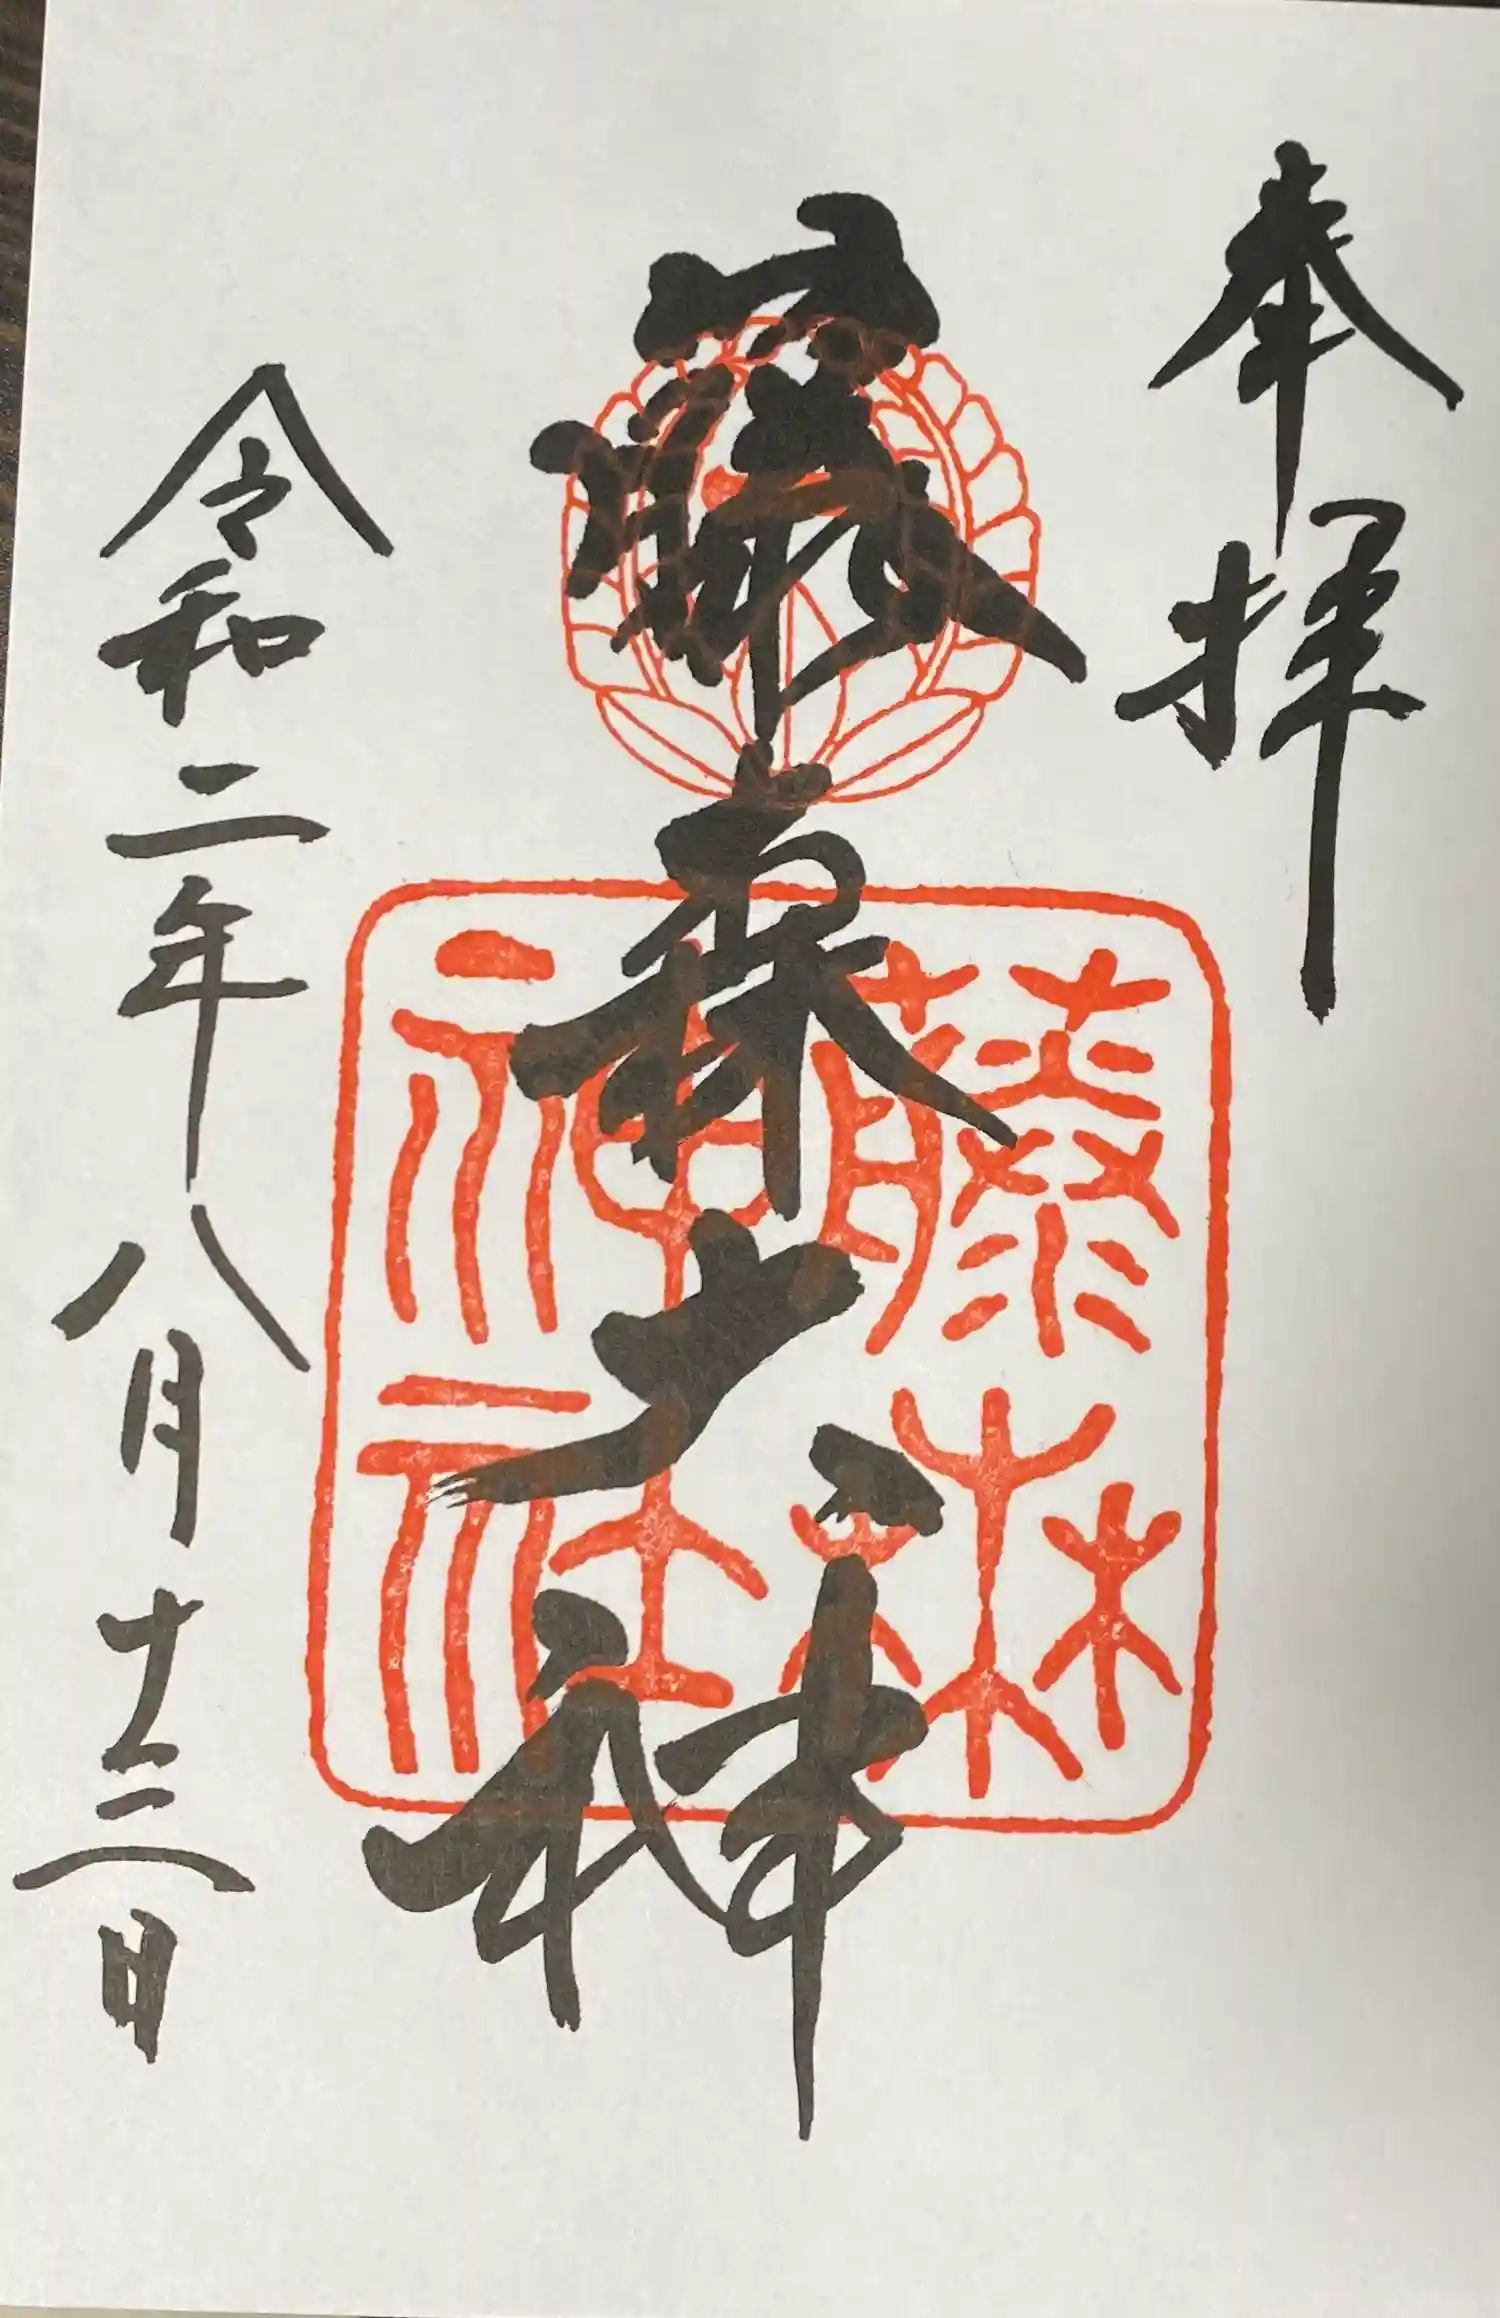 奉拝
藤森大神
藤森
神社
令和二年八月十三日